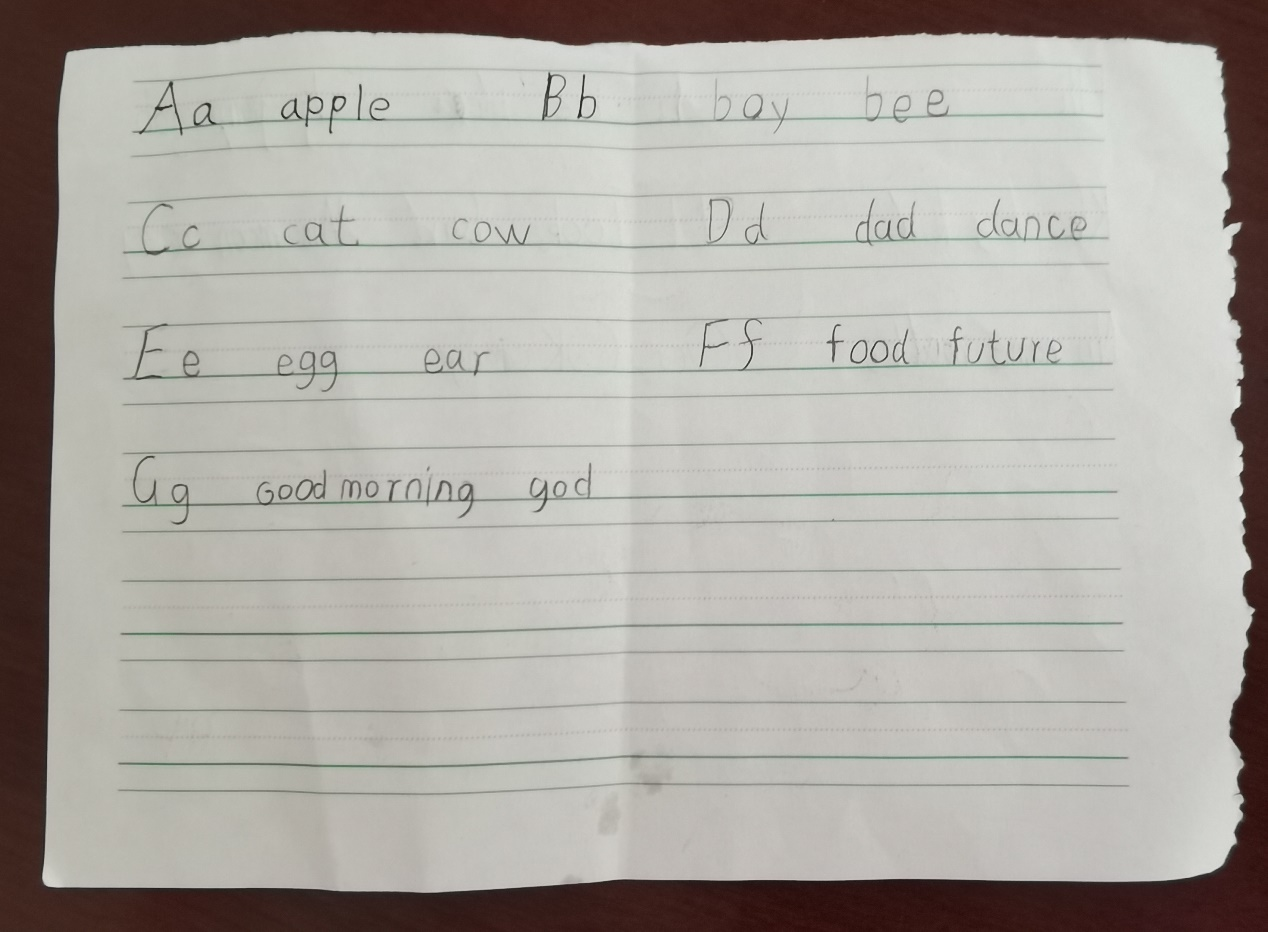 Aa apple Bb boy bee
Cc cat cow Dd dad dance
Ee egg ear Ff food future
Gg Good morning god